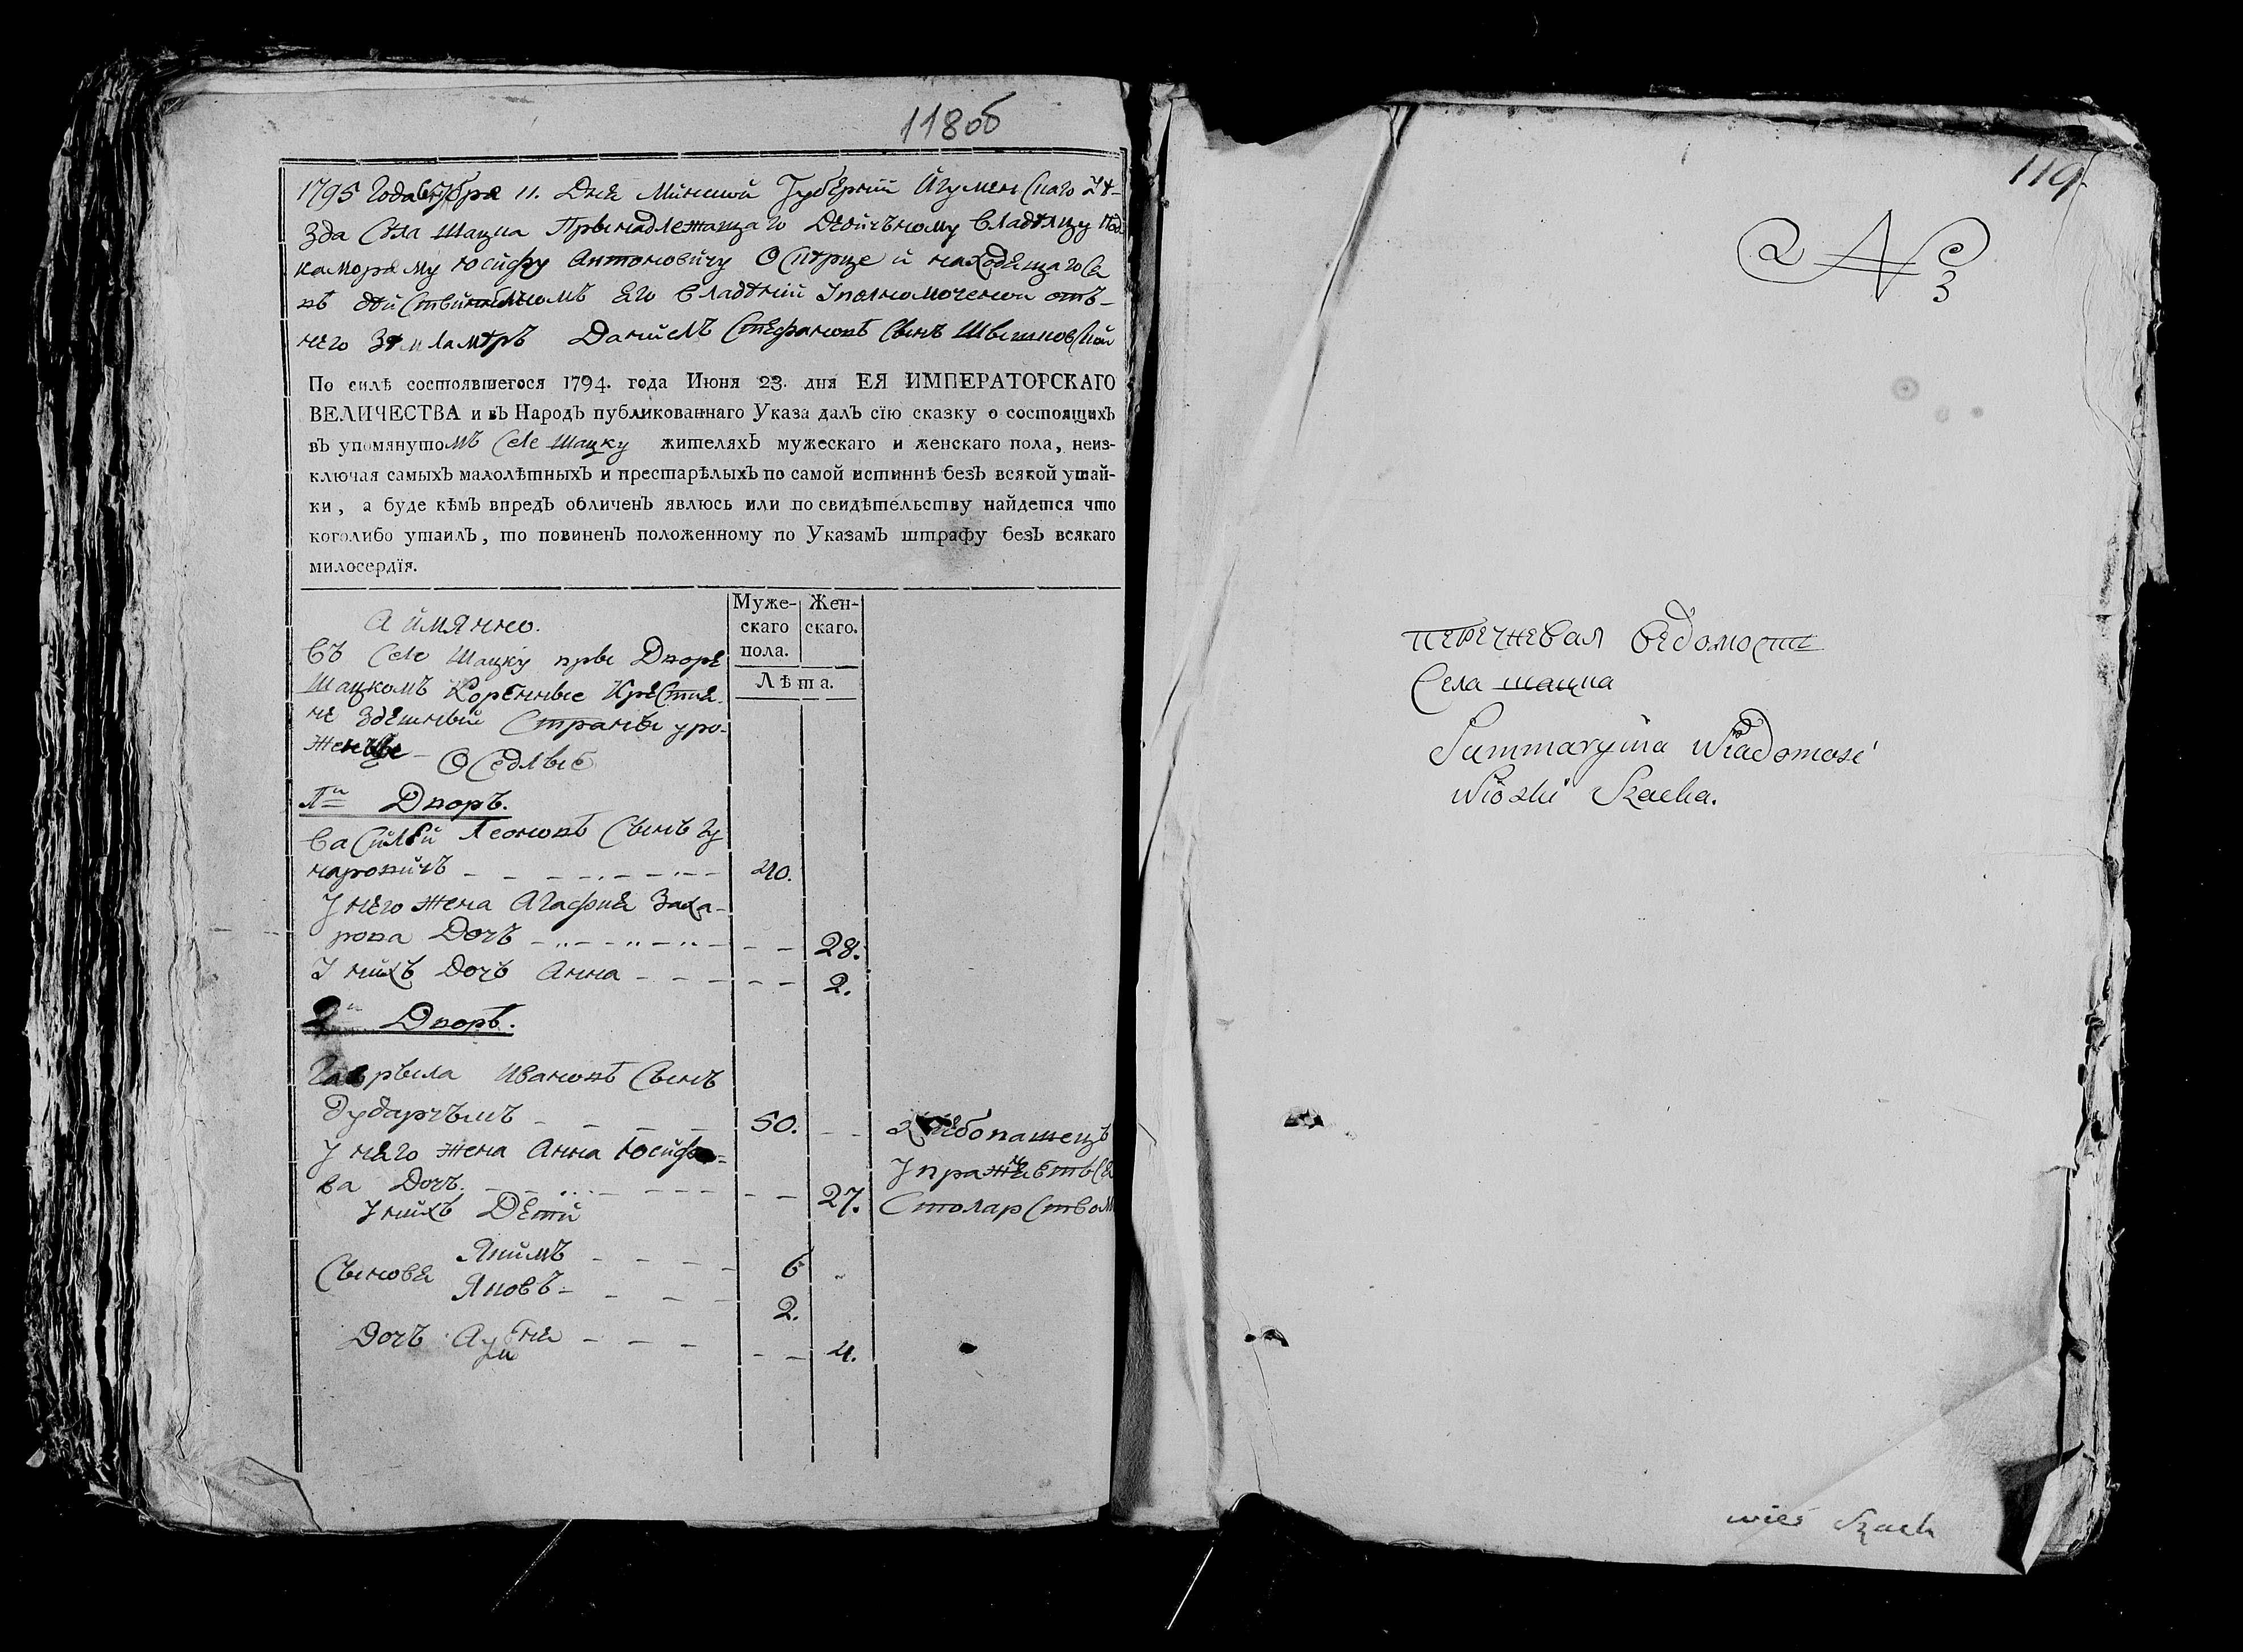 118об
1795 Года 11. Дня Минской Губерній Игуменскаго Уѣ-
зда Села Шацка Прынадлежащаго Владѣлцу Под
коморему Юсифу Антоновичу Оштрпе и находящагося
въ его Владѣній Уполномоченой отъ-
него Данйелъ Стефановъ Сынъ
По силѣ состоявшегося 1794. года Июня 23. дня ЕЯ ИМПЕРАТОРСКАГО
ВЕЛИЧЕСТВА и въ Народъ публикованнаго Указа далъ сїю сказку о состоящихъ
въ упомянутомъ Селе Шацку жителяхъ мужескаго и женскаго пола, неиз-
ключая самыхъ малолѣтныхъ и престарѣлыхъ по самой истиннѣ безъ всякой утай-
ки, а буде кѣмъ впредъ обличенъ явлюсь или по свидѣтельству найдется что
коголибо утаилъ, то повиненъ положенному по Указамъ штрафу безъ всякаго
милосердїя.
Муже- Жен-
скаго скаго.
пола.
Лѣта.
А имянно.
Въ Селе Шацку пры Дворе
Шацкомъ Коренные Крестия-
не здешный Страны уро-
женцы – Оседлые
1й Дворъ.
Василей Леоновъ Сынъ Гу
наровичъ 40.
У него жена Агафия Заха-
рова Дочъ 28.
У нихъ Дочъ Анна 2.
2й Дворъ.
Гаврыла Ивановъ Сынъ
Дударчыкъ 50. Хлебопашецъ
У него жена Анна Юсифо-
Упражняетъся
ва Дочъ. 27. Столарством
У нихъ Дети
Якимъ 6
Сынове
Яковъ 2.
Дочъ 4.
119
N 3
перечневая ведомость
Села шацка
Summaryina Wiadomosć
Wioski Szacka.
wieś Szack